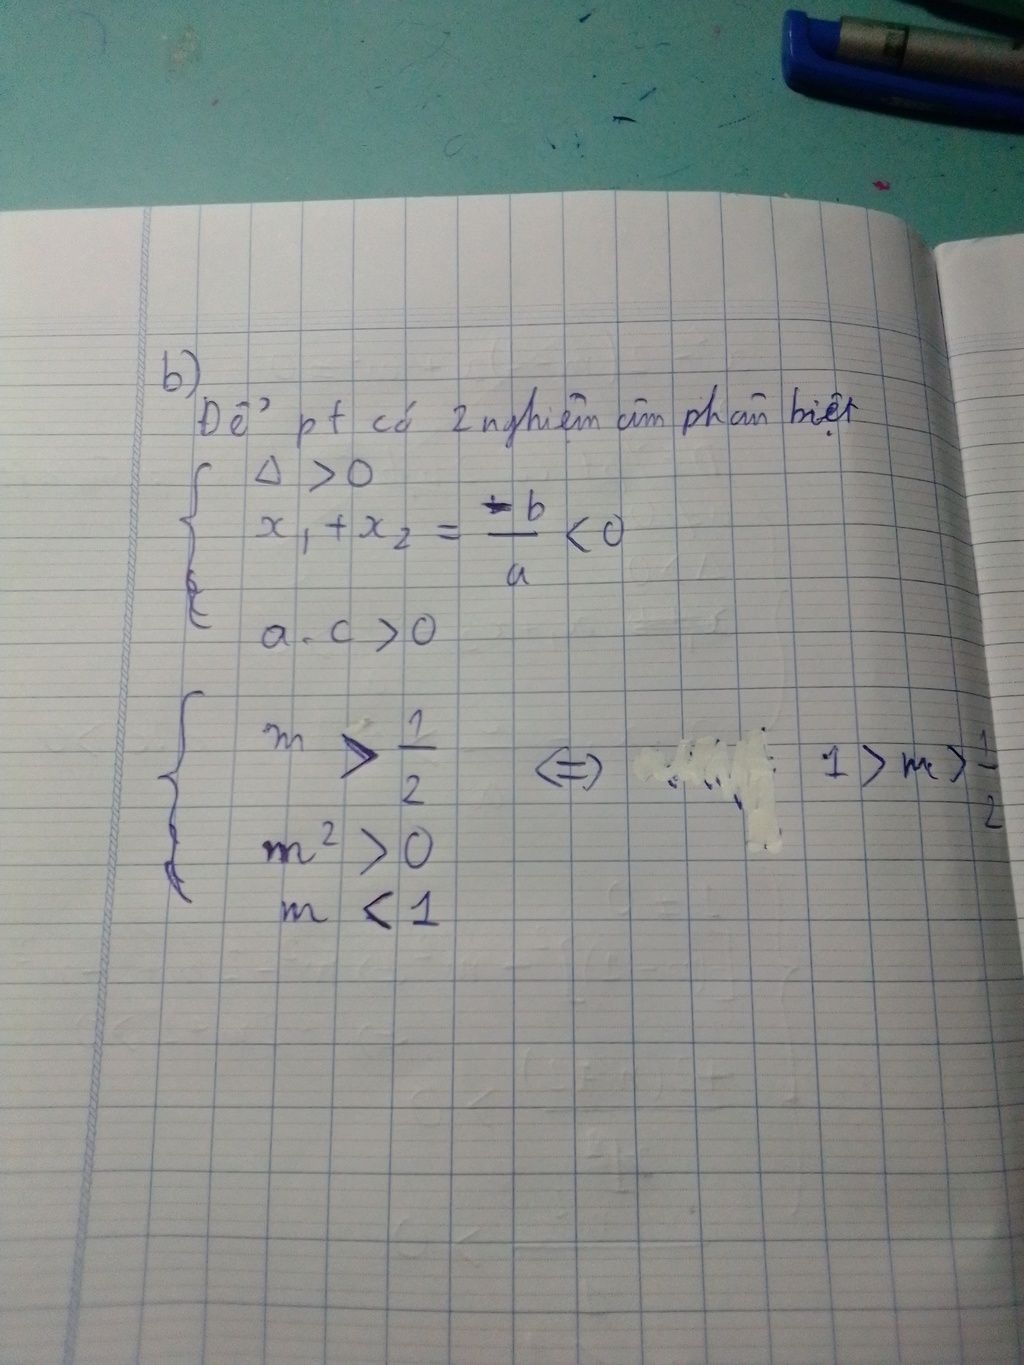 b)
Để pt có 2 nghiệm âm phân biệt
Δ > 0
x₁ + x₂ = -b/a < 0
a . c > 0
m > 1/2 <=> 1 > m > 1/2
m² > 0
m < 1